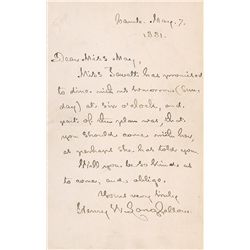 Camb. May. 7.
1881.
Dear Miss May,
Miss Sewall has promised
to dine with us tomorrow (Sun-
day) at six o'clock, and
part of the plan was that
you should come with her,
as perhaps she has told you.
Will you be so kind as
to come, and oblige,
Yours very truly
Henry W. Longfellow.